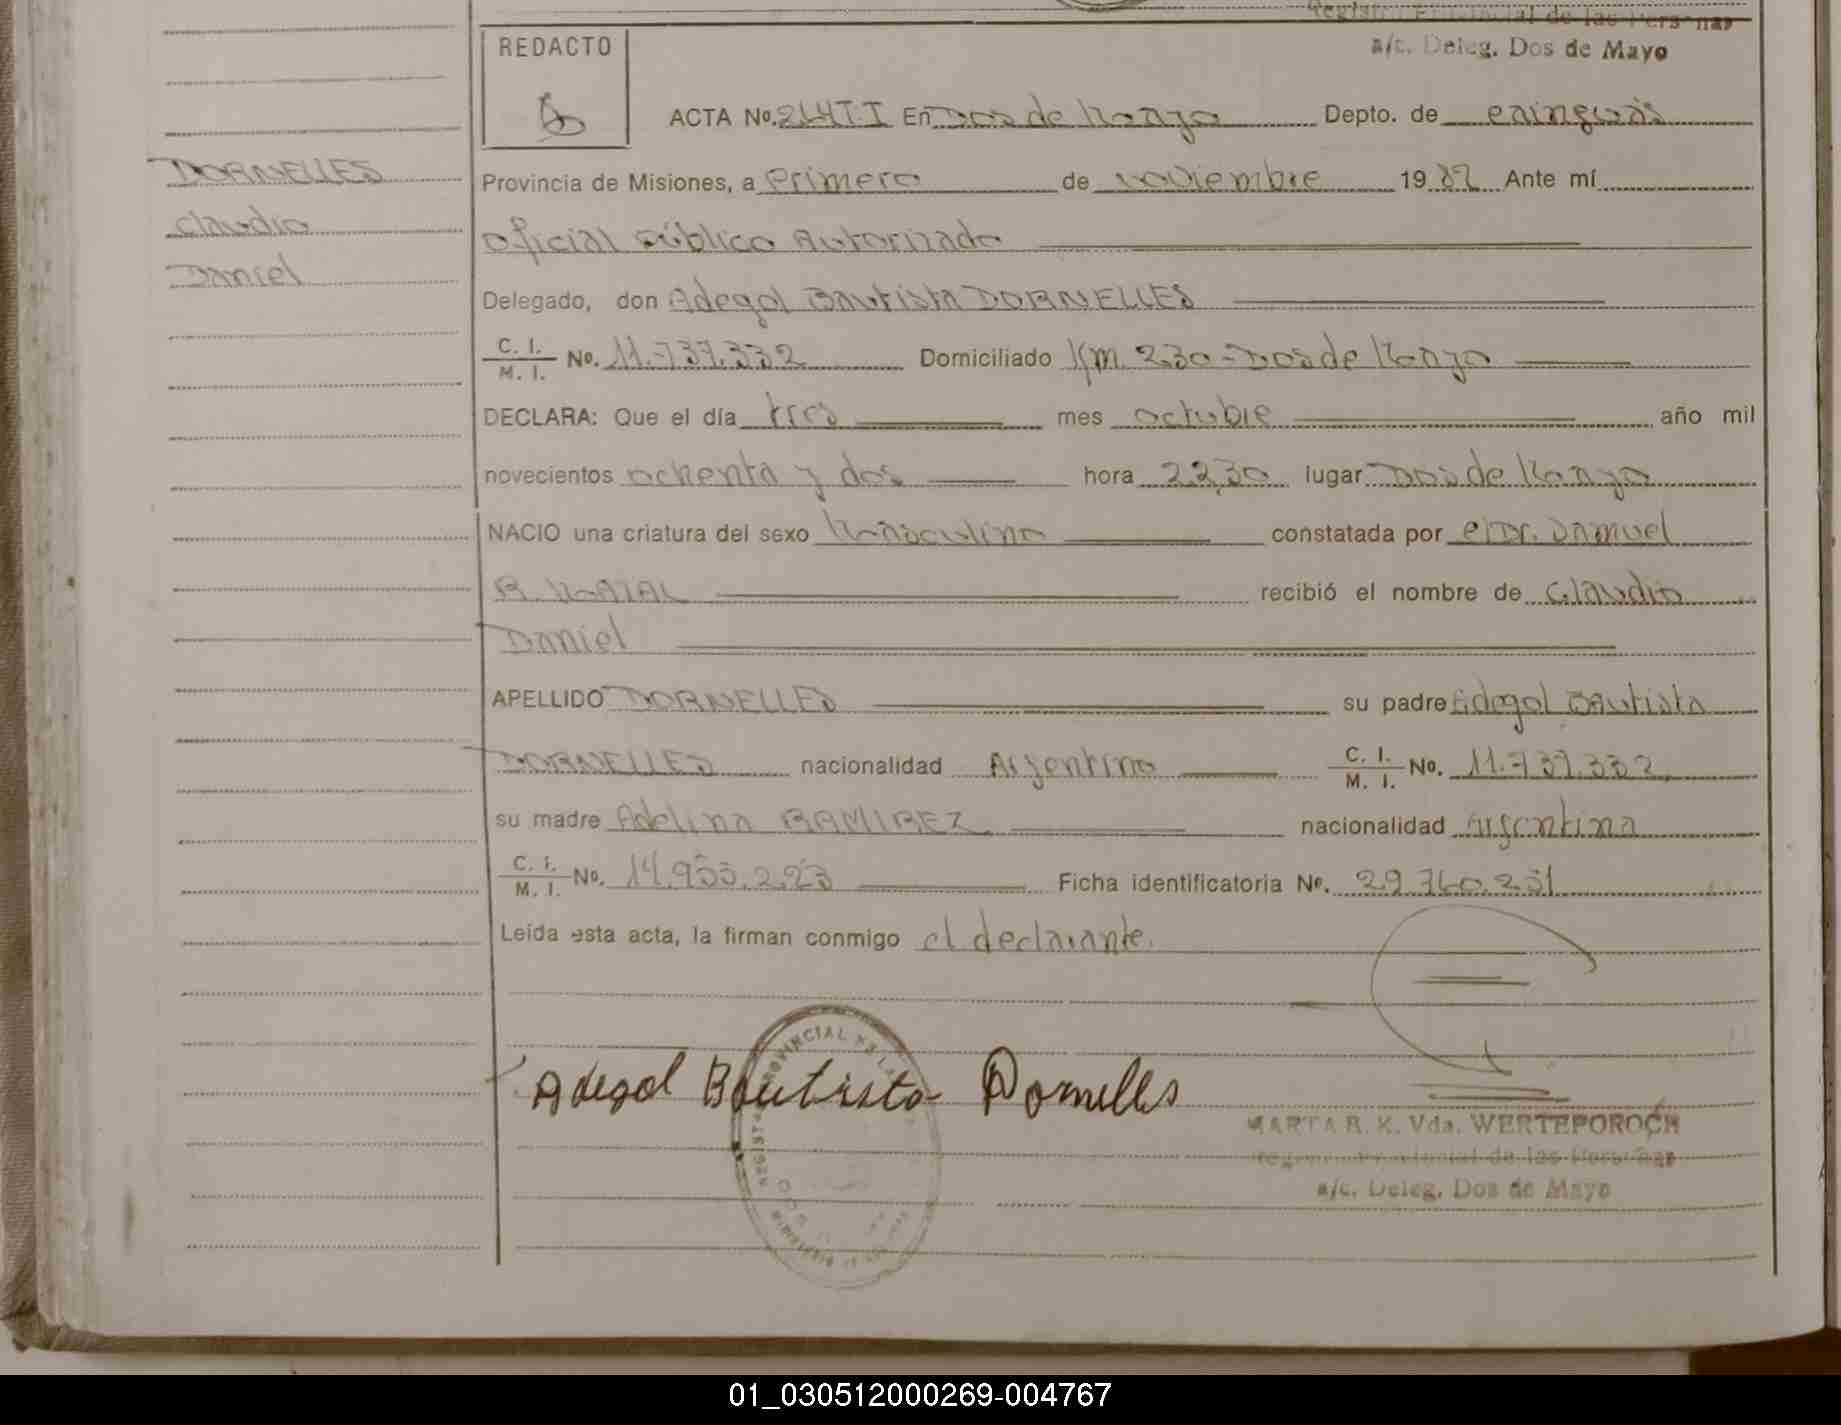 Registro Provincial de las Personas
a/c. Deleg. Dos de Mayo
REDACTO
ACTA No. 214 T.I En Dos de Mayo Depto. de Cainguás
DORNELLES
Claudio
Daniel
Provincia de Misiones, a primero de noviembre 1982 Ante mí
Oficial Público Autorizado
Delegado, don Adegol Bautista DORNELLES
C. I. M. I. No. 11.737.332 Domiciliado Km. 230 - Dos de Mayo
DECLARA: Que el día tres mes octubre año mil
novecientos ochenta y dos hora 22,30 lugar Dos de Mayo
NACIO una criatura del sexo Masculino constatada por el Dr. Samuel
R. recibió el nombre de Claudio
Daniel
APELLIDO DORNELLES su padre Adegol Bautista
DORNELLES nacionalidad Argentino C. I. M. I. No. 11.737.332
su madre Adelina RAMIREZ nacionalidad Argentina
C. I. M. I. No. 14.953.223 Ficha identificatoria No. 29.760.251
Leída esta acta, la firman conmigo el declarante.
Adegol Bautista Dornelles
MARTA R. K. Vda. WERTEPOROCH
Registro Provincial de las Personas
a/c. Deleg. Dos de Mayo
01_030512000269-004767